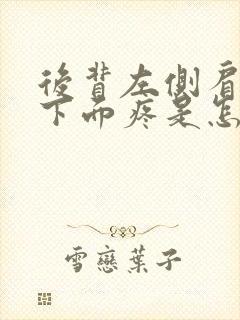 後背左側肩
下面疼是怎
雪戀葉子